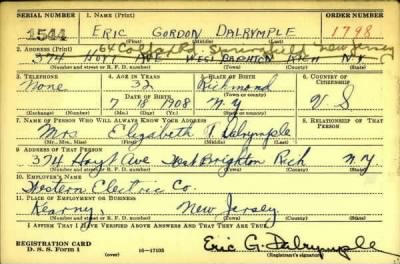 SERIAL NUMBER 1. NAME (Print) ORDER NUMBER
1544 ERIC GORDON DALRYMPLE 1798
(First) (Middle) (Last)
64 Colfax Rd. Springfield New Jersey
2. ADDRESS (Print)
374 HOYT AVE WEST BRIGHTON RICH N.Y.
(Number and street or R. F. D. number) (Town) (County) (State)
3. TELEPHONE 4. AGE IN YEARS 5. PLACE OF BIRTH 6. COUNTRY OF CITIZENSHIP
None 32 Richmond
DATE OF BIRTH (Town or county)
7 18 1908 N.Y. U S
(Exchange) (Number) (Mo.) (Day) (Yr.) (State or country)
7. NAME OF PERSON WHO WILL ALWAYS KNOW YOUR ADDRESS 8. RELATIONSHIP OF THAT PERSON
Mrs Elizabeth Dalrymple
(Mr., Mrs., Miss) (First) (Middle) (Last)
9. ADDRESS OF THAT PERSON
374 Hoyt Ave West Brighton Rich N.Y.
(Number and street or R. F. D. number) (Town) (County) (State)
10. EMPLOYER'S NAME
Western Electric Co.
11. PLACE OF EMPLOYMENT OR BUSINESS
Kearny, New Jersey
(Number and street or R. F. D. number) (Town) (County) (State)
I AFFIRM THAT I HAVE VERIFIED ABOVE ANSWERS AND THAT THEY ARE TRUE.
REGISTRATION CARD
D. S. S. Form 1 (over) 16—17105 Eric G. Dalrymple
(Registrant's signature)